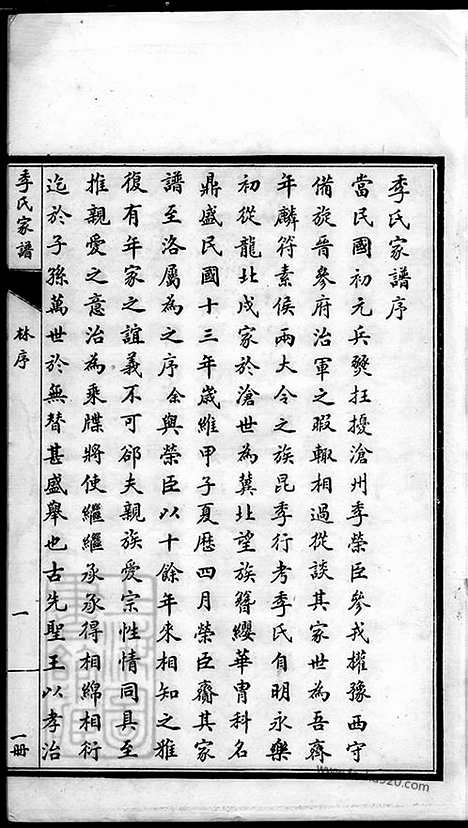 季氏家譜序
當民國初元兵燹抂擾滄州季榮臣參戎擢豫西守
備旋晉參府治軍之暇輙相過從談其家世為吾齊
年麟符素侯兩大令之族昆季行考季氏自明永樂
初從龍北戍家於滄世為冀北望族簪纓華胄科名
鼎盛民國十三年歲維甲子夏厯四月榮臣齎其家
譜至洛屬為之序余與榮臣以十餘年來相知之雅
復有年家之誼義不可郤夫親族愛宗性情同具至
推親愛之意治為乘牒將使繼繼承承得相綿相衍
迄於子孫萬世於無替甚盛舉也古先聖王以孝治
季氏家譜
林序
一
一冊